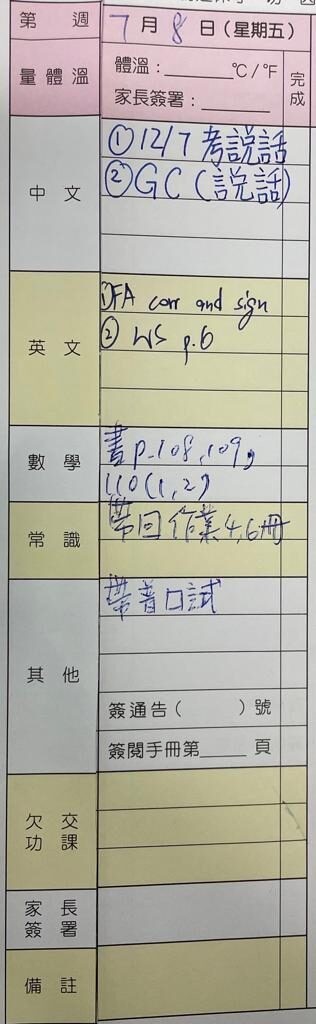 第 週 7 月 8 日 (星期五)
量體溫 體溫：______°C/°F 完成
家長簽署：______
中文 ①12/7 考説話
②GC (説話)
英文 ①FA corr and sign
② WS p.6
數學 書p.108,109,
110(1,2)
常識 帶回作業4,6冊
其他 帶普口試
簽通告( )號
簽閱手冊第____頁
欠交功課
家長簽署
備註